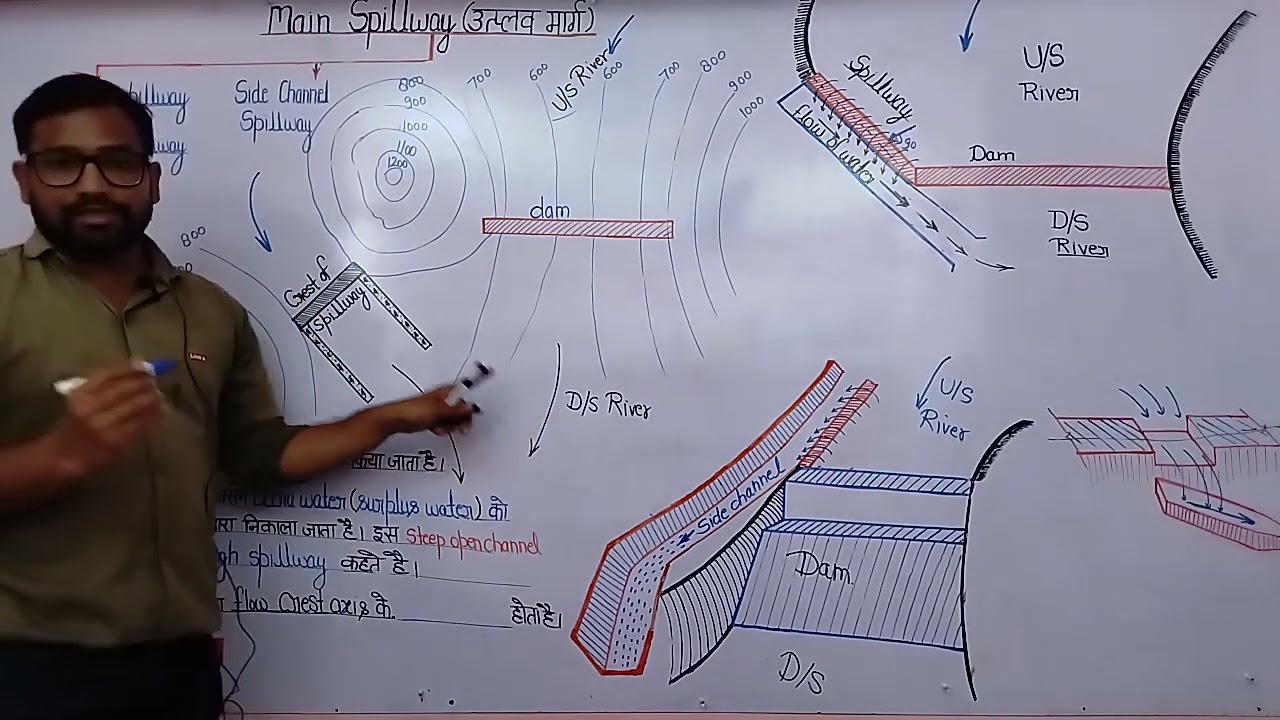 Main Spillway (उत्प्लव मार्ग)
Side Channel
Spillway
800
900
1000
1100
1200
700
600
U/S River
600
700
800
900
1000
dam
800
Crest of
Spillway
D/S River
किया जाता है।
water (surplus water) को
निकाला जाता है। इस steep open channel
spillway कहते है।
flow Crest axis के ____________ होता है।
Spillway
flow of water
90
U/S
River
Dam
D/S
River
Side channel
U/S
River
Dam
D/S